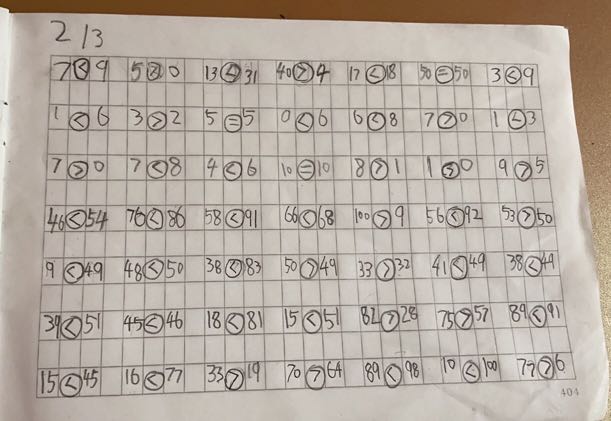 2 13
7<9 5>0 13<31 40>4 17<18 50=50 3<9
1<6 3>2 5=5 0<6 6<8 7>0 1<3
7>0 7<8 4<6 10=10 8>1 1>0 9>5
46<54 76<86 58<91 66<68 100>9 56<92 53>50
9<49 48<50 38<83 50>49 33>32 41<49 38<49
39<51 45<46 18<81 15<51 82>28 75>57 89<91
15<45 16<77 33>19 70>64 89<98 10<100 77>6
404